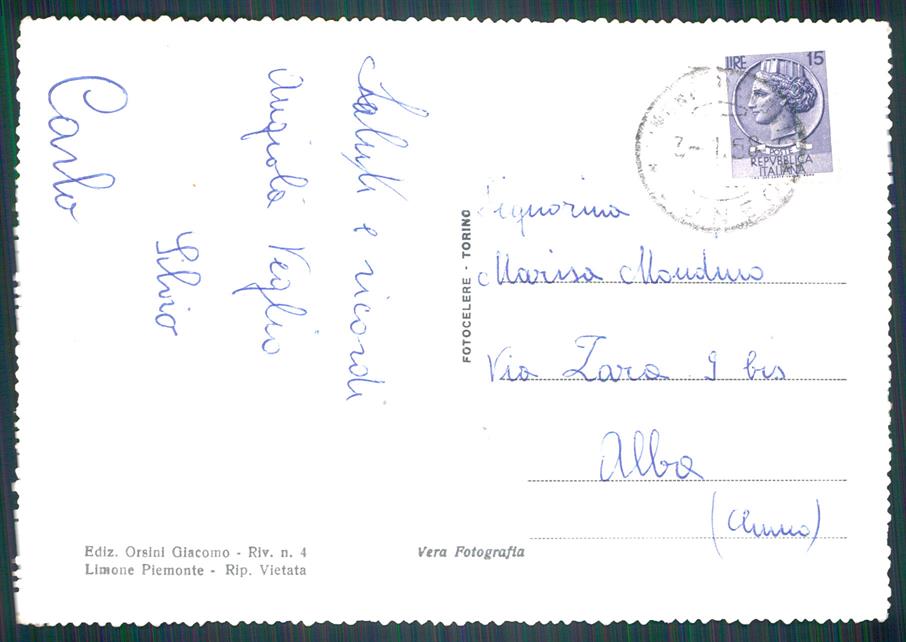 Saluti e ricordi
Angiola Veglio
Silvio
Carlo
FOTOCELERE - TORINO
LIRE 15
POSTE
REPVBBLICA
ITALIANA
Signorina
Marisa Mondino
Via Zara 9 bis
Alba
(Cuneo)
Ediz. Orsini Giacomo - Riv. n. 4
Limone Piemonte - Rip. Vietata
Vera Fotografia